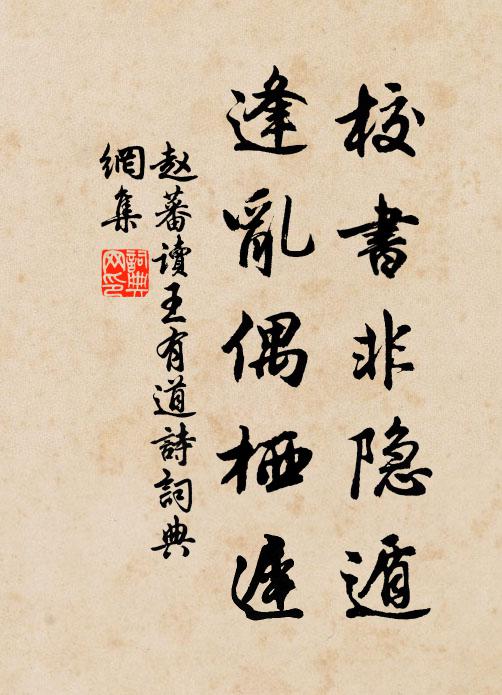 校書非隐遁
逢亂偶栖遲
赵蕃讀王有道詩詞典
網集
詞典
网印